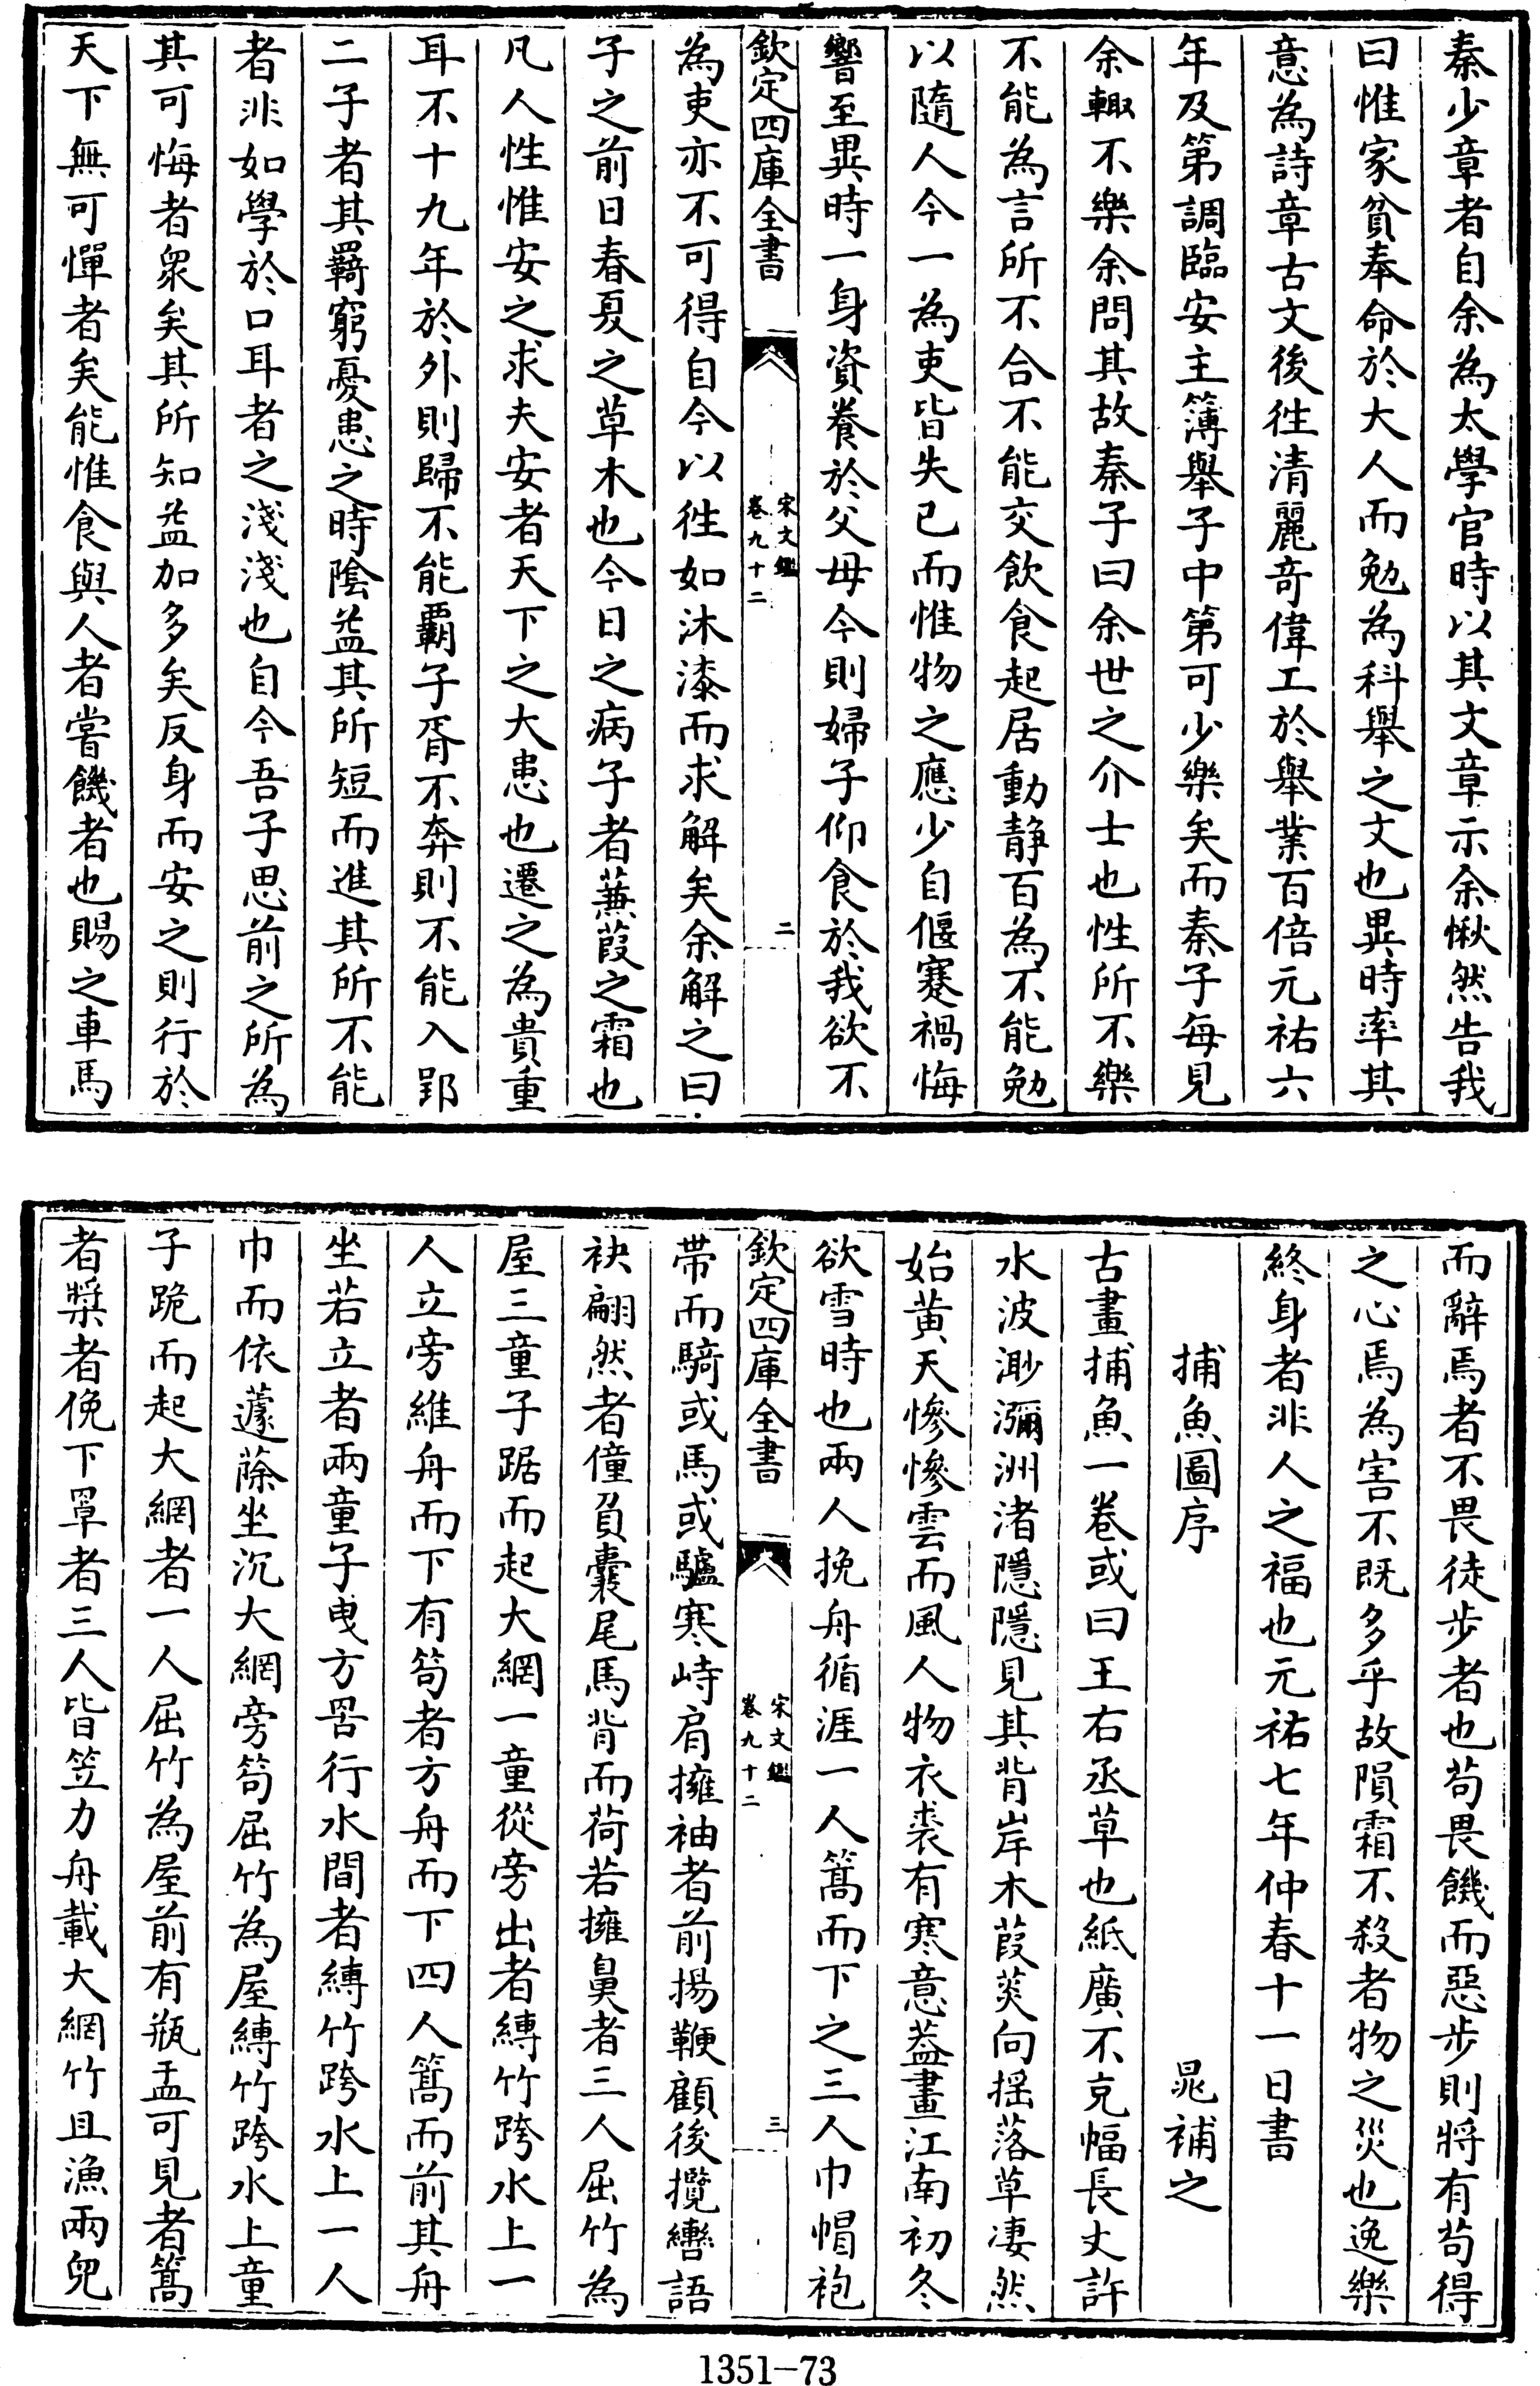 秦少章者自余為太學官時以其文章示余愀然告我
曰惟家貧奉命於大人而勉為科舉之文也異時率其
意為詩章古文後徃清麗竒偉工於舉業百倍元祐六
年及第調臨安主簿舉子中第可少樂矣而秦子每見
余輙不樂余問其故秦子曰余世之介士也性所不樂
不能為言所不合不能交飲食起居動静百為不能勉
以隨人今一為吏皆失已而惟物之應少自偃蹇禍悔
響至異時一身資養於父母今則婦子仰食於我欲不
欽定四庫全書
宋文鑑
卷九十二
二
為吏亦不可得自今以徃如沐漆而求解矣余解之曰
子之前日春夏之草木也今日之病子者蒹葭之霜也
凡人性惟安之求夫安者天下之大患也遷之為貴重
耳不十九年於外則歸不能霸子胥不奔則不能入郢
二子者其羇窮憂患之時陰益其所短而進其所不能
者非如學於口耳者之淺淺也自今吾子思前之所為
其可悔者衆矣其所知益加多矣反身而安之則行於
天下無可憚者矣能惟食與人者嘗饑者也賜之車馬
而辭焉者不畏徒步者也苟畏饑而惡步則將有苟得
之心焉為害不既多乎故隕霜不殺者物之災也逸樂
終身者非人之福也元祐七年仲春十一日書
捕魚圖序
晁補之
古畫捕魚一卷或曰王右丞草也紙廣不充幅長丈許
水波渺瀰洲渚隱隱見其背岸木葭菼向揺落草凄然
始黄天慘慘雲而風人物衣裘有寒意蓋畫江南初冬
欲雪時也兩人挽舟循涯一人篙而下之三人巾帽袍
欽定四庫全書
宋文鑑
卷九十二
三
帶而騎或馬或驢寒峙肩擁袖者前揚鞭顧後攬轡語
袂翩然者僮負囊尾馬背而荷若擁鼻者三人屈竹為
屋三童子踞而起大網一童從旁出者縛竹跨水上一
人立旁維舟而下有笱者方舟而下四人篙而前其舟
坐若立者兩童子曵方罟行水間者縛竹跨水上一人
巾而依蘧蒢坐沉大網旁笱屈竹為屋縛竹跨水上童
子跪而起大網者一人屈竹為屋前有瓶盂可見者篙
者槳者俛下罩者三人皆笠力舟載大網竹且漁兩兒
1351-73